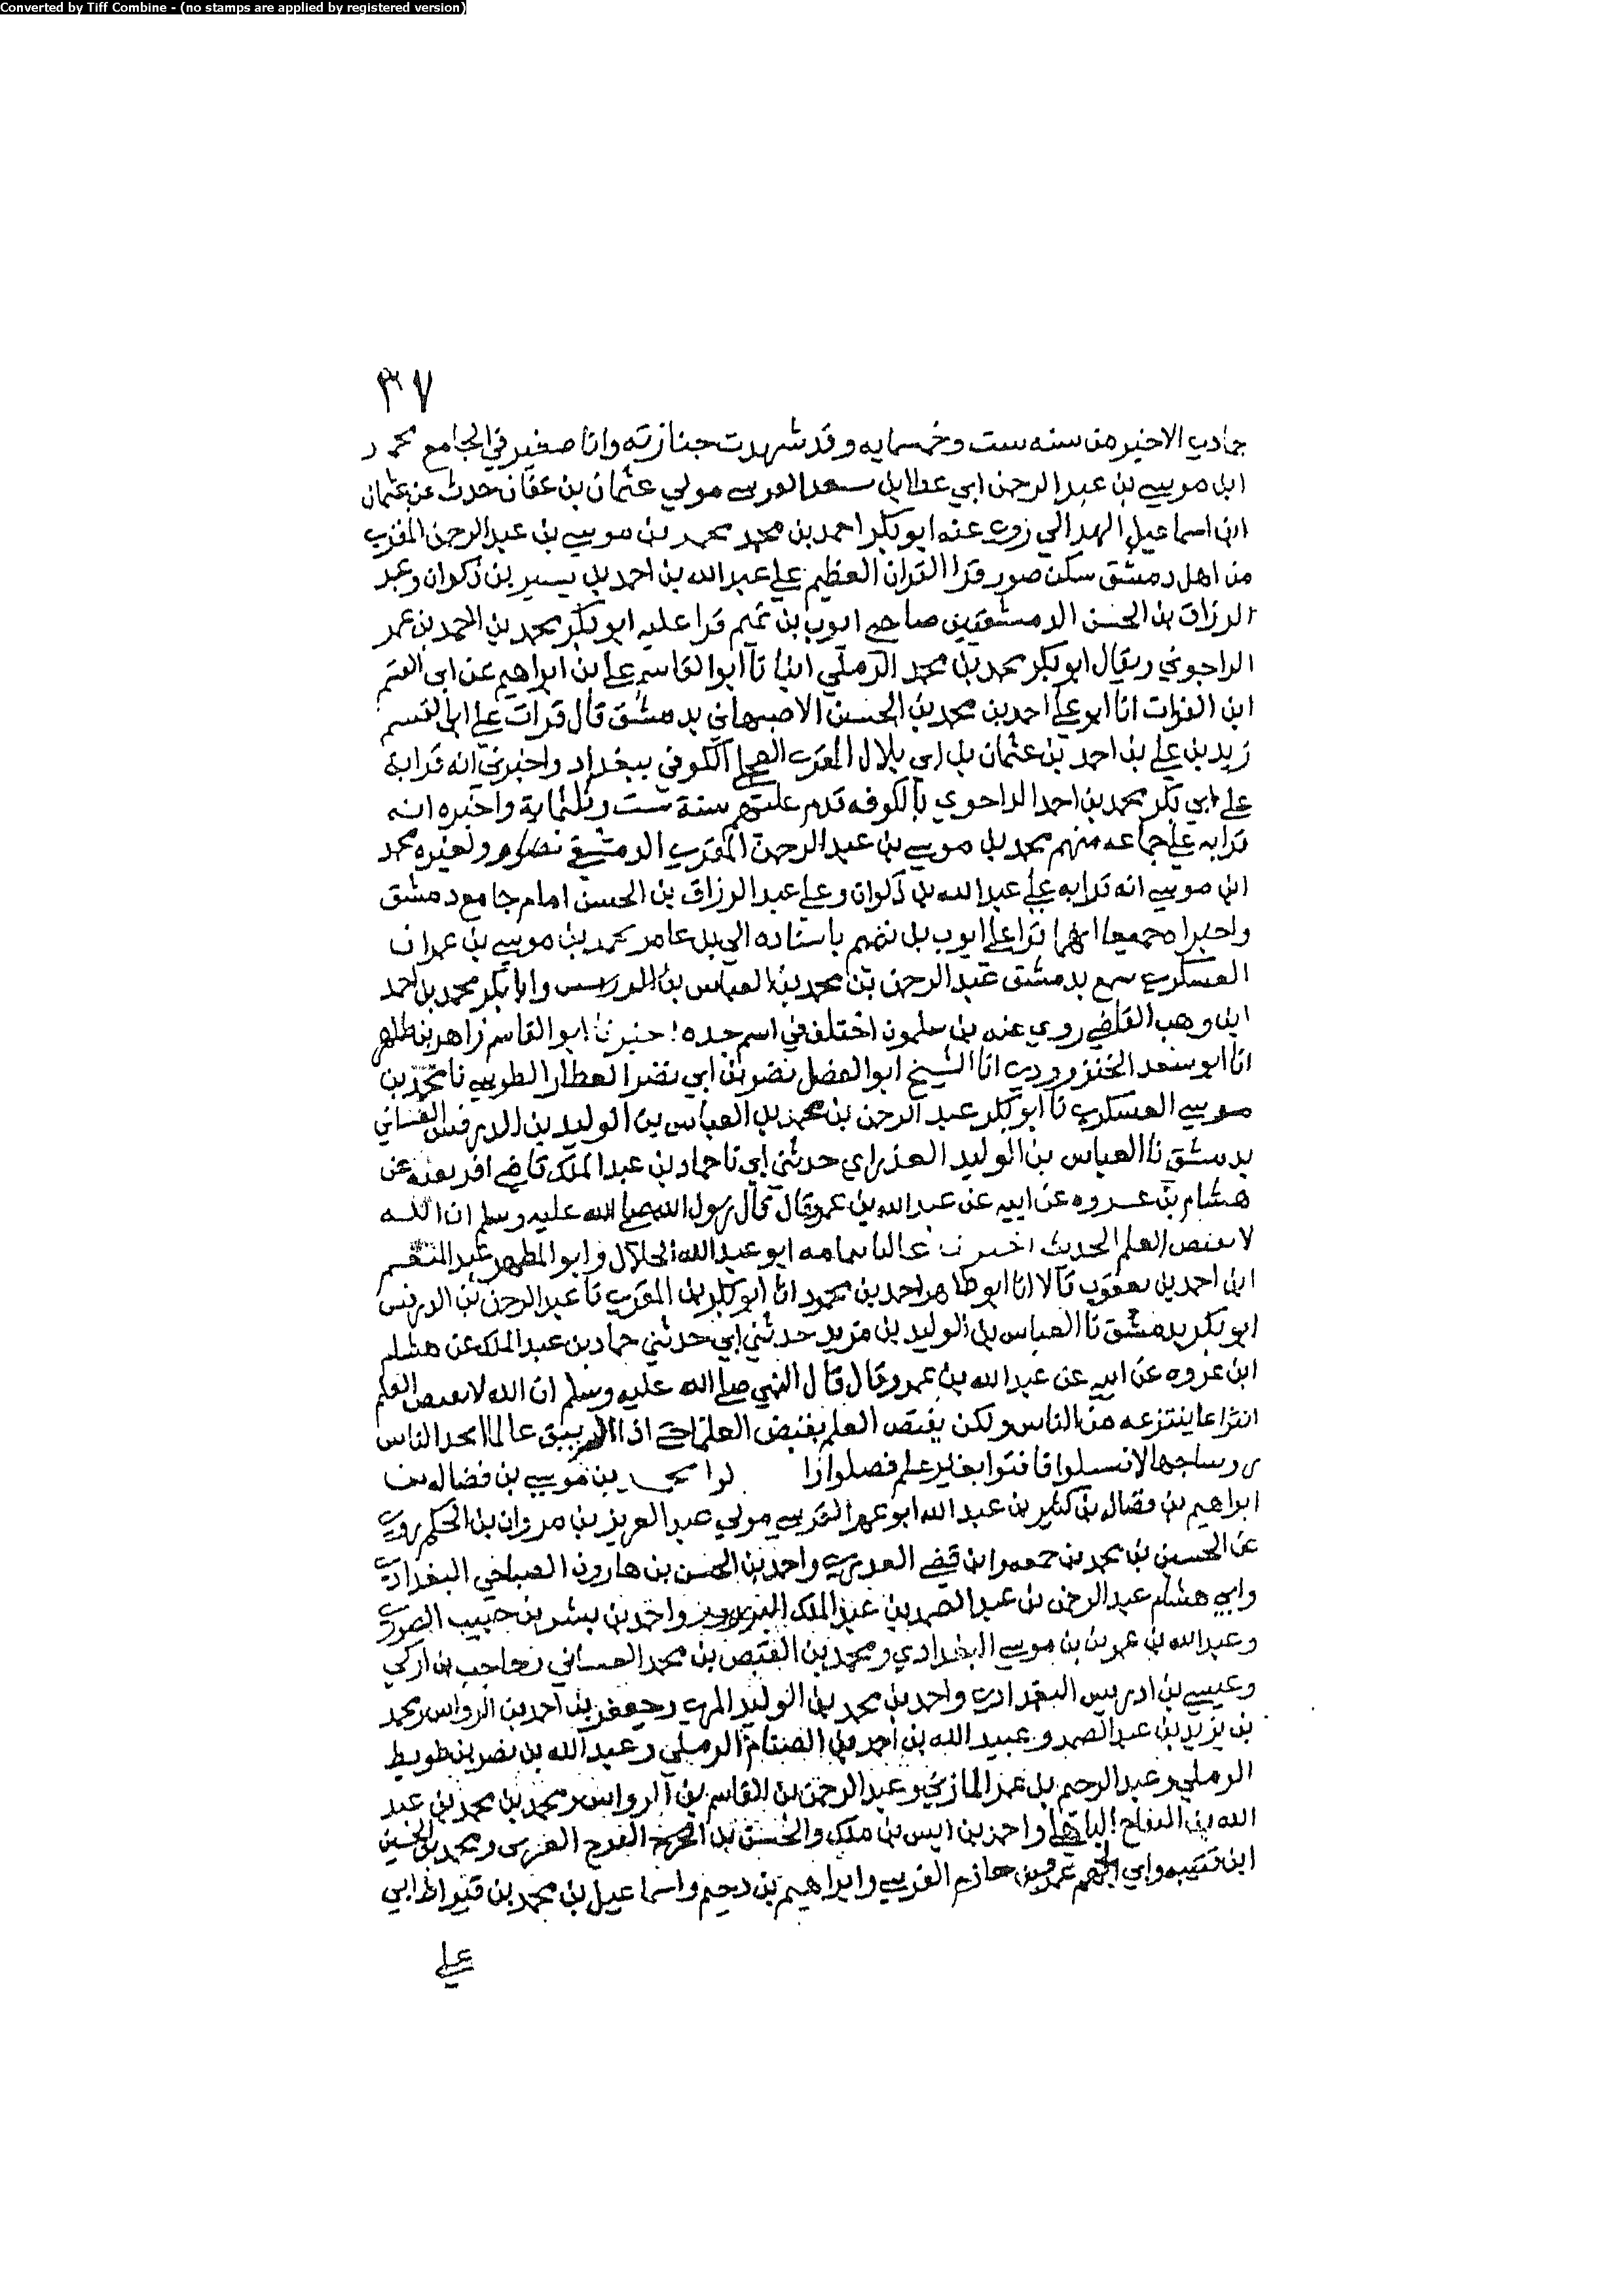 Converted by Tiff Combine - (no stamps are applied by registered version)
٣٧
جمادي الاخير من سنه ست وخمسمايه وقد شهدت جنازته وانا صغير في الجامع محمد
ابن موسي بن عبد الرحمن ابي عطا بن سعد مولي عثمان بن عفان حدث عن عثمان
ابن اسماعيل الهدالي روي عنه ابو بكر احمد بن محمد محمد بن موسي بن عبد الرحمن المقري
من اهل دمشق سكن صور قرا القران العظيم علي عبد الله بن احمد بن بسير بن ذكوان وعبد
الرزاق بن الحسن الدمشقيين صاحبي ايوب بن تميم قرا عليه ابو بكر محمد بن احمد بن عمر
الداجوني ويقال ابو بكر محمد بن محمد الرملي انبانا ابو القاسم علي بن ابراهيم عن ابي القسم
ابن الفرات انا ابو علي احمد بن محمد بن الحسن الاصبهاني بدمشق قال قرات علي ابي القسم
زيد بن علي بن احمد بن عثمان بن ابي بلال المقري العجلي الكوفي ببغداد واخبرني انه قرا به
علي ابي بكر محمد بن احمد الداجوي بالكوفه قدم عليهم سنة ست وثلثماية واخبره انه
قرا به علي جماعه منهم محمد بن موسي بن عبد الرحمن المقري الدمشقي ولغيره محمد
ابن موسي انه قرا به علي عبد الله بن ذكوان وعلي عبد الرزاق بن الحسن امام جامع دمشق
واخبرا جميعا انهما قرا علي ايوب بن تميم باسناده الي بن عامر محمد بن موسي بن عمران
العسكري سمع بدمشق عبد الرحمن بن محمد بن العباس بن الدرفس وابا بكر محمد بن احمد
ابن وهب القاضي روي عنه بن سلمون اختلف في اسم جده اخبرنا ابو القاسم زاهر بن طاهر
انا ابو سعد الخنزرودي انا الشيخ ابو الفضل نصر بن ابي نصر العطار الطوسي نا محمد بن
موسي العسكري نا ابو بكر عبد الرحمن بن محمد بن العباس بن الوليد بن الدرفس الغساني
بدمشق نا العباس بن الوليد العذراي حدثني ابي نا حماد بن عبد الملك قاضي افريقيه عن
هشام بن عروه عن ابيه عن عبد الله بن عمرو قال قال رسول الله صلي الله عليه وسلم ان الله
لا يقبض العلم الحديث اخبرنا عاليا بتمامه ابو عبد الله الخلال وابو المطهر عبد المنعم
ابن احمد بن يعقوب قالا انا ابو طاهر احمد بن محمود انا ابو بكر بن المقري نا عبد الرحمن بن الدرفس
ابو بكر بدمشق نا العباس بن الوليد بن مزيد حدثني ابي حدثني حماد بن عبد الملك عن هشام
ابن عروه عن ابيه عن عبد الله بن عمرو قال قال النبي صلي الله عليه وسلم ان الله لا يقبض العلم
انتزاعا ينتزعه من الناس ولكن يقبض العلم بقبض العلما حتي اذا لم يبق عالما اتخذ الناس
روسا جهالا فسيلوا فافتوا بغير علم فضلوا واضلوا محمد بن موسي بن فضاله بن
ابراهيم بن فضاله بن كثير بن عبد الله ابو عمر القرسي مولي عبد العزيز بن مروان بن الحكم روي
عن الحسين بن محمد بن جمعه واحمد بن الحسن بن هارون الصباحي البغدادي
وابي هشام عبد الرحمن بن عبد الصمد بن عبد الملك واحمد بن بشر بن حبيب الصوري
وعبد الله بن عمر بن موسي البغدادي ومحمد بن الفيض بن محمد الغساني وحاجب بن اركي
وعيسي بن ادريس البغدادي واحمد بن محمد بن الوليد المري وجعفر بن احمد بن الرواس ومحمد
بن يزيد بن عبد الصمد وعبيد الله بن احمد بن الصنام الرملي وعبد الله بن نصر بن طويط
الرملي وعبد الرحيم بن عمر المازني وعبد الرحمن بن القاسم بن الرواس ومحمد بن محمد بن عبد
الله بن النفاح الباهلي واحمد بن انيس بن ملك والحسن بن الفرج الغزي ومحمد بن الحسن
ابن قتيبه وابي الجهم عمرو بن حازم القرسي وابراهيم بن دحيم واسماعيل بن محمد بن قيراط ابي
علي